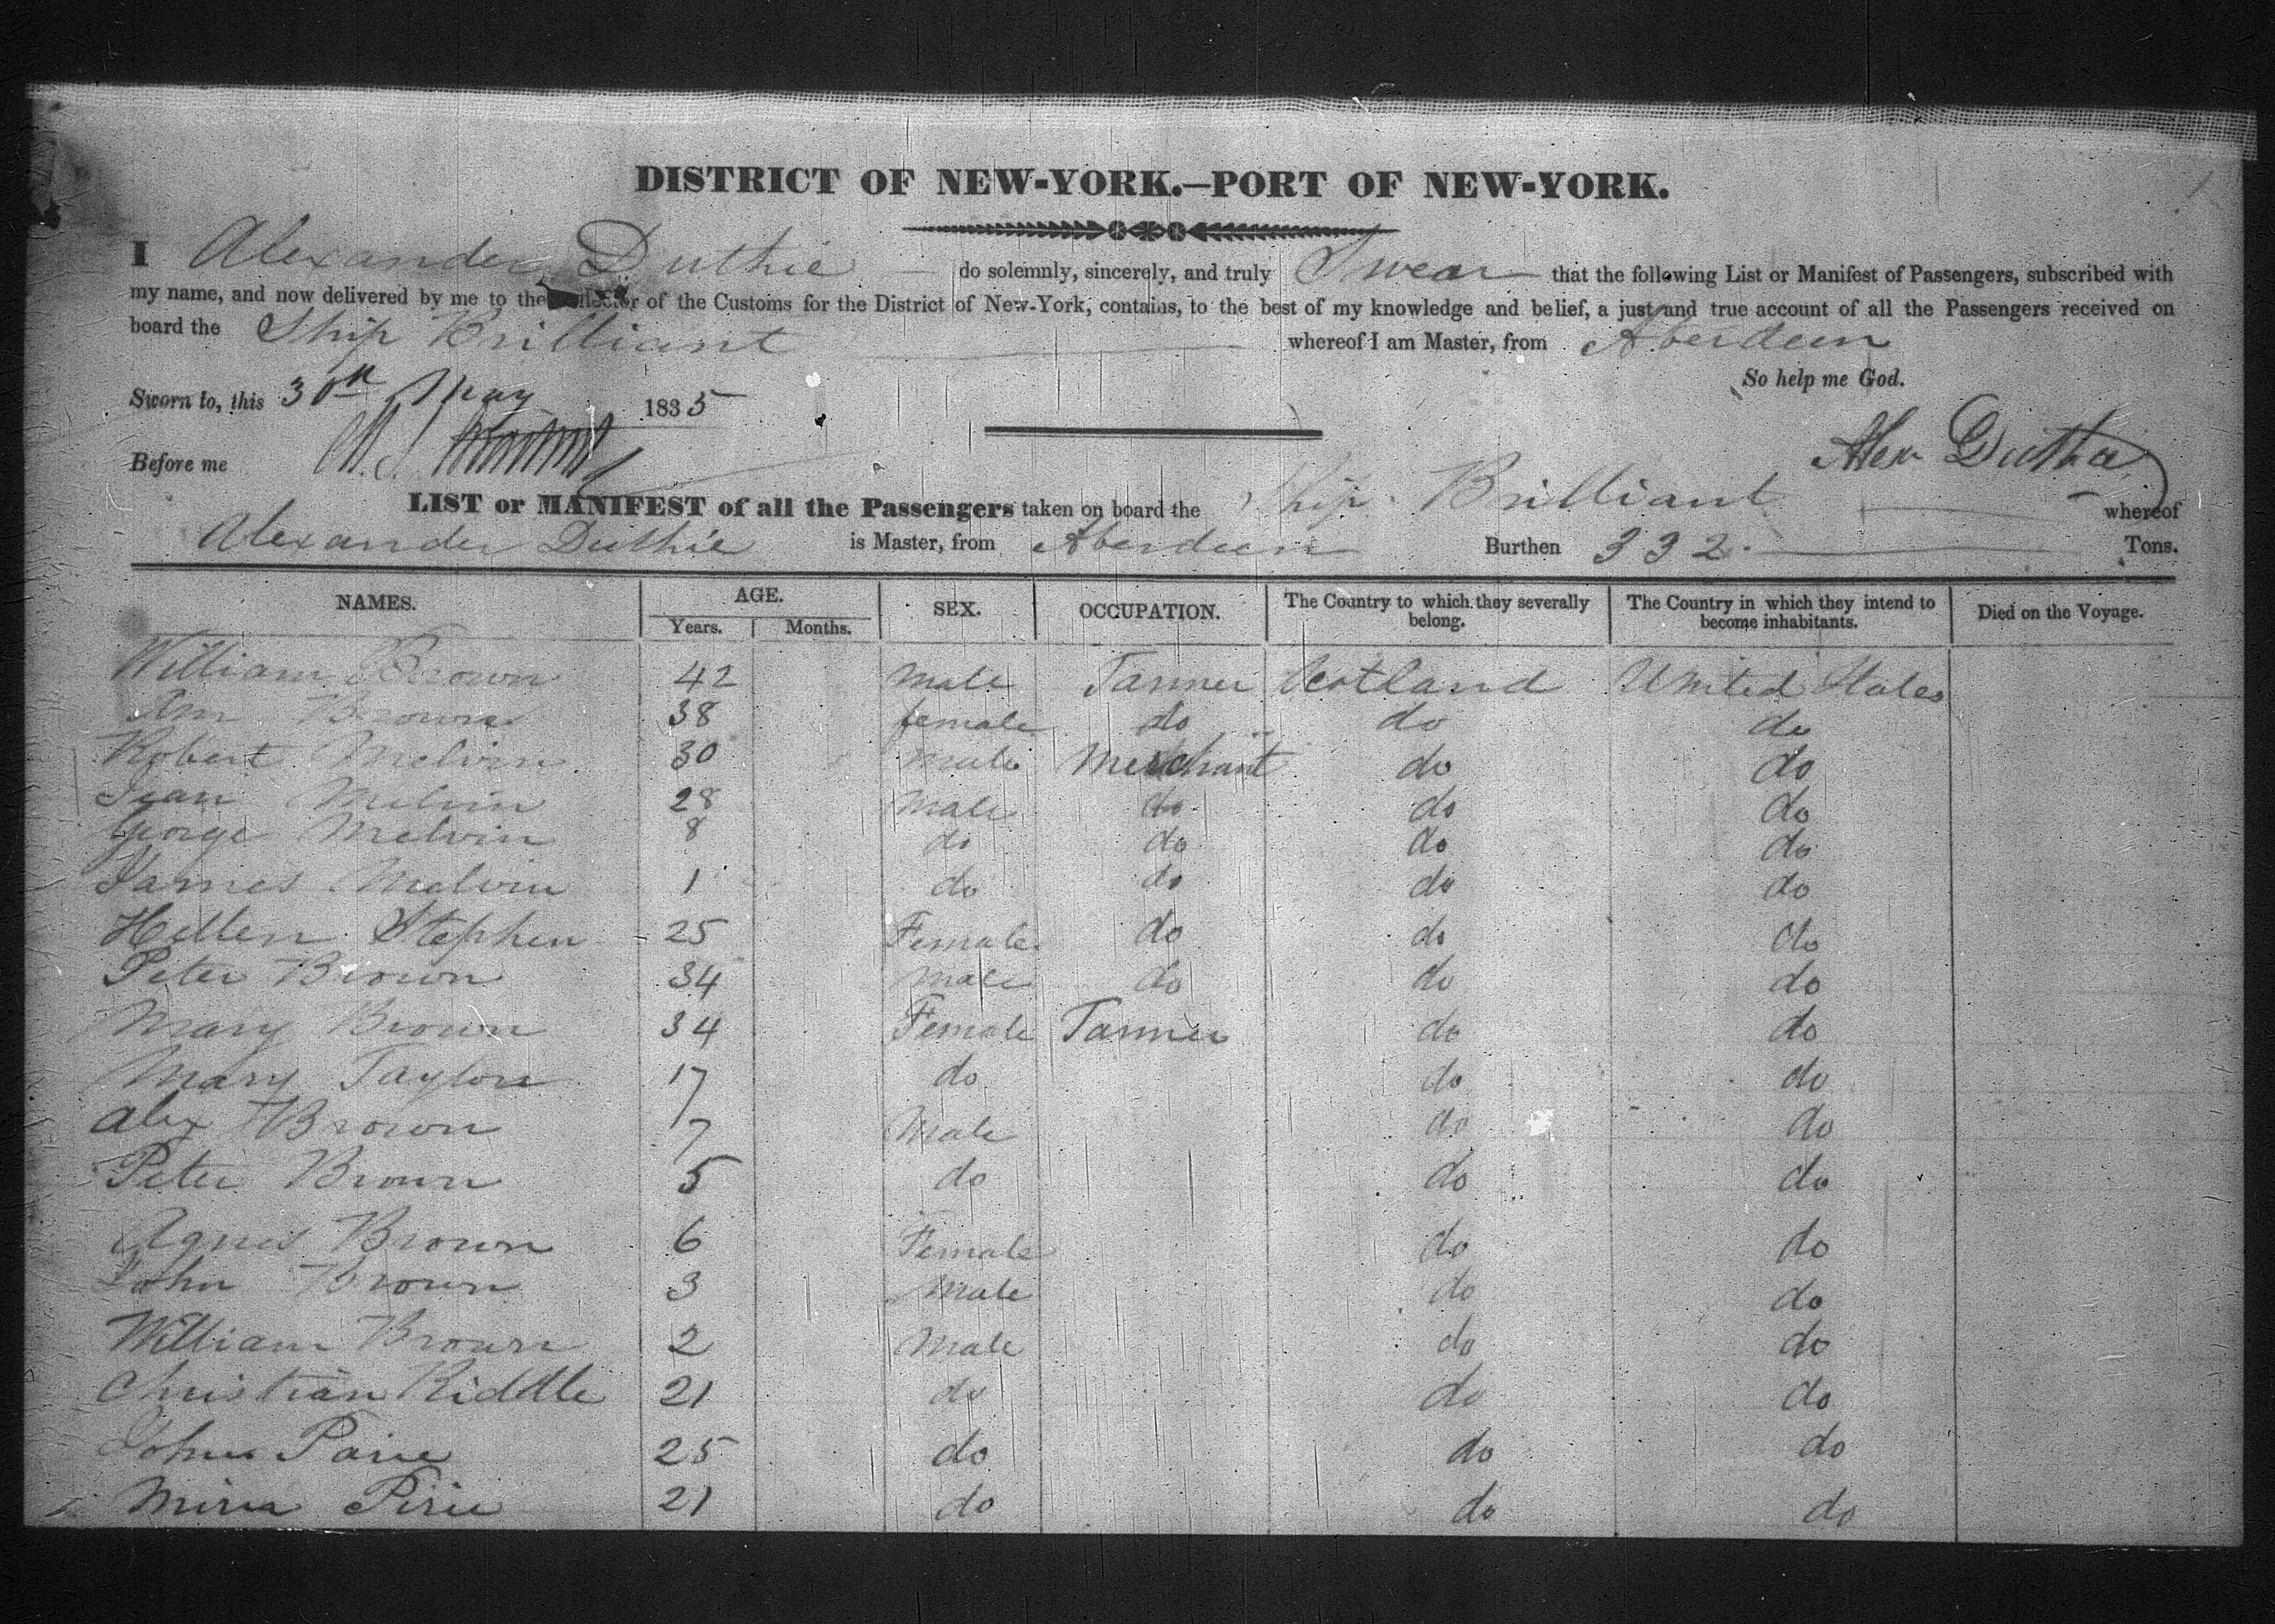 DISTRICT OF NEW-YORK.—PORT OF NEW-YORK.
I Alexander Duthie do solemnly, sincerely, and truly Swear that the following List or Manifest of Passengers, subscribed with
my name, and now delivered by me to the Collector of the Customs for the District of New-York, contains, to the best of my knowledge and belief, a just and true account of all the Passengers received on
board the Ship Brilliant whereof I am Master, from Aberdeen
So help me God.
Sworn to, this 30th May 1835
Alex Duthie
Before me
LIST or MANIFEST of all the Passengers taken on board the Ship Brilliant whereof
Alexander Duthie is Master, from Aberdeen Burthen 332 Tons.
NAMES. AGE. Years. Months. SEX. OCCUPATION. The Country to which they severally belong. The Country in which they intend to become inhabitants. Died on the Voyage.
William Brown 42 Male Tanner Scotland United States
Ann Brown 38 female do do do
Robert Melvin 30 Male Merchant do do
Jean Melvin 28 Male do do do
George Melvin 8 do do do do
James Melvin 1 do do do do
Hellen Stephen 25 Female do do do
Peter Brown 34 Male do do do
Mary Brown 34 Female Tanner do do
Mary Taylor 17 do do do
Alex Brown 7 Male do do
Peter Brown 5 do do do
Agnes Brown 6 Female do do
John Brown 3 Male do do
William Brown 2 Male do do
Christian Riddle 21 do do do
John Pirie 25 do do do
Pirie 21 do do do